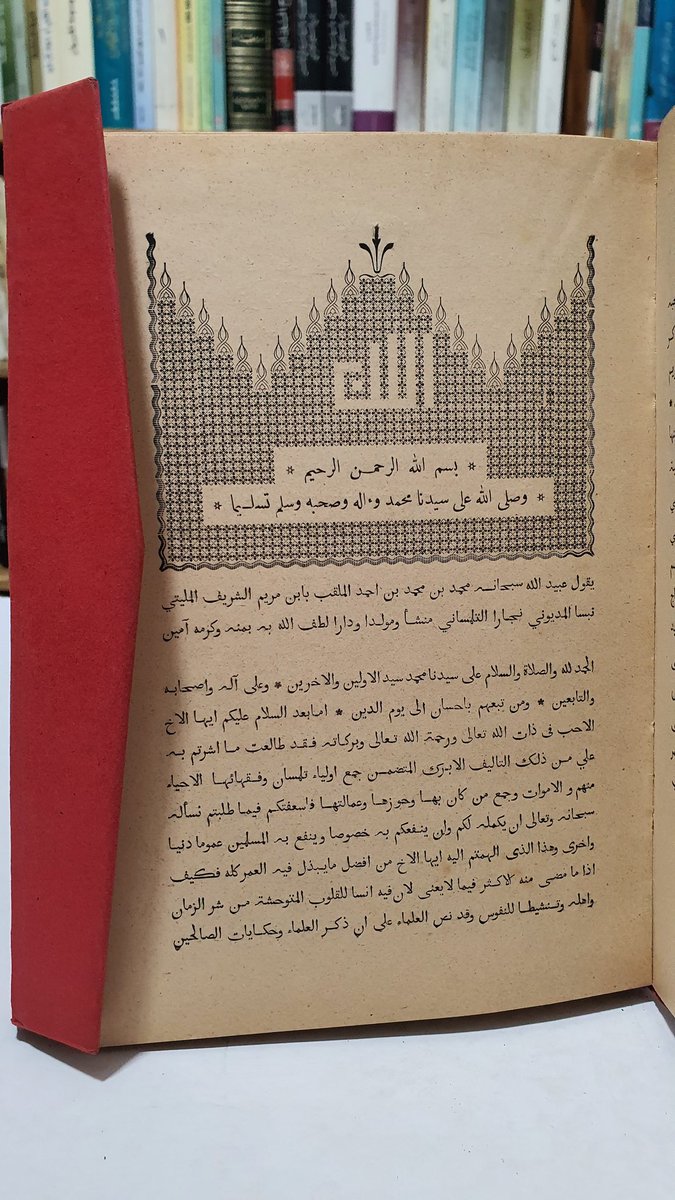 الله
* بسم الله الرحمن الرحيم *
* وصلى الله على سيدنا محمد وءاله وصحبه وسلم تسليما *
يقول عبيد الله سبحانه محمد بن محمد بن احمد الملقب بابن مريم الشريف المليتي
نسبا المديوني نجارا التلمساني منشأ ومولدا ودارا لطف الله به بمنه وكرمه آمين
الحمد لله والصلاة والسلام على سيدنا محمد سيد الاولين والاخرين * وعلى آله واصحابه
والتابعين * ومن تبعهم باحسان الى يوم الدين * اما بعد السلام عليكم ايها الاخ
الاحب فى ذات الله تعالى ورحمة الله تعالى وبركاته فقد طالعت ما اشرتم به
علي من ذلك التاليف الابرك المتضمن جمع اولياء تلمسان وفقهائها الاحياء
منهم والاموات وجمع من كان بها وحوزها وعمالتها فاسعفتكم فيما طلبتم نسأله
سبحانه وتعالى ان يكمله لكم وان ينفعكم به خصوصا وينفع به المسلمين عموما دنيا
واخرى وهذا الذى الهمتم اليه ايها الاخ من افضل ما يبذل فيه العمر كله فكيف
اذا ما مضى منه لاكثر فيما لا يعنى لان فيه انسا للقلوب المتوحشة من شر الزمان
واهله وتنشيطا للنفوس وقد نص العلماء على ان ذكر العلماء وحكايات الصالحين